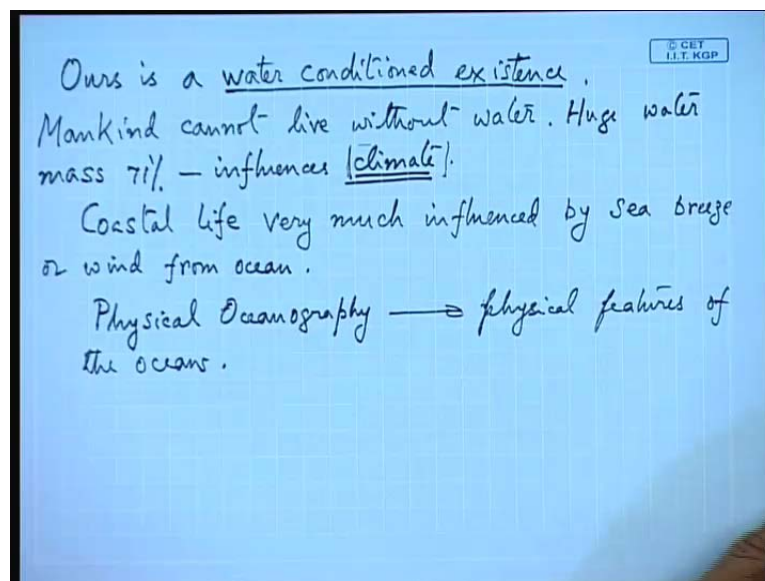 © CET
I.I.T. KGP
Ours is a water conditioned existence.
Mankind cannot live without water. Huge water
mass 71% – influences |climate|.
Coastal life very much influenced by sea breeze
or wind from ocean.
Physical Oceanography → physical features of
the oceans.